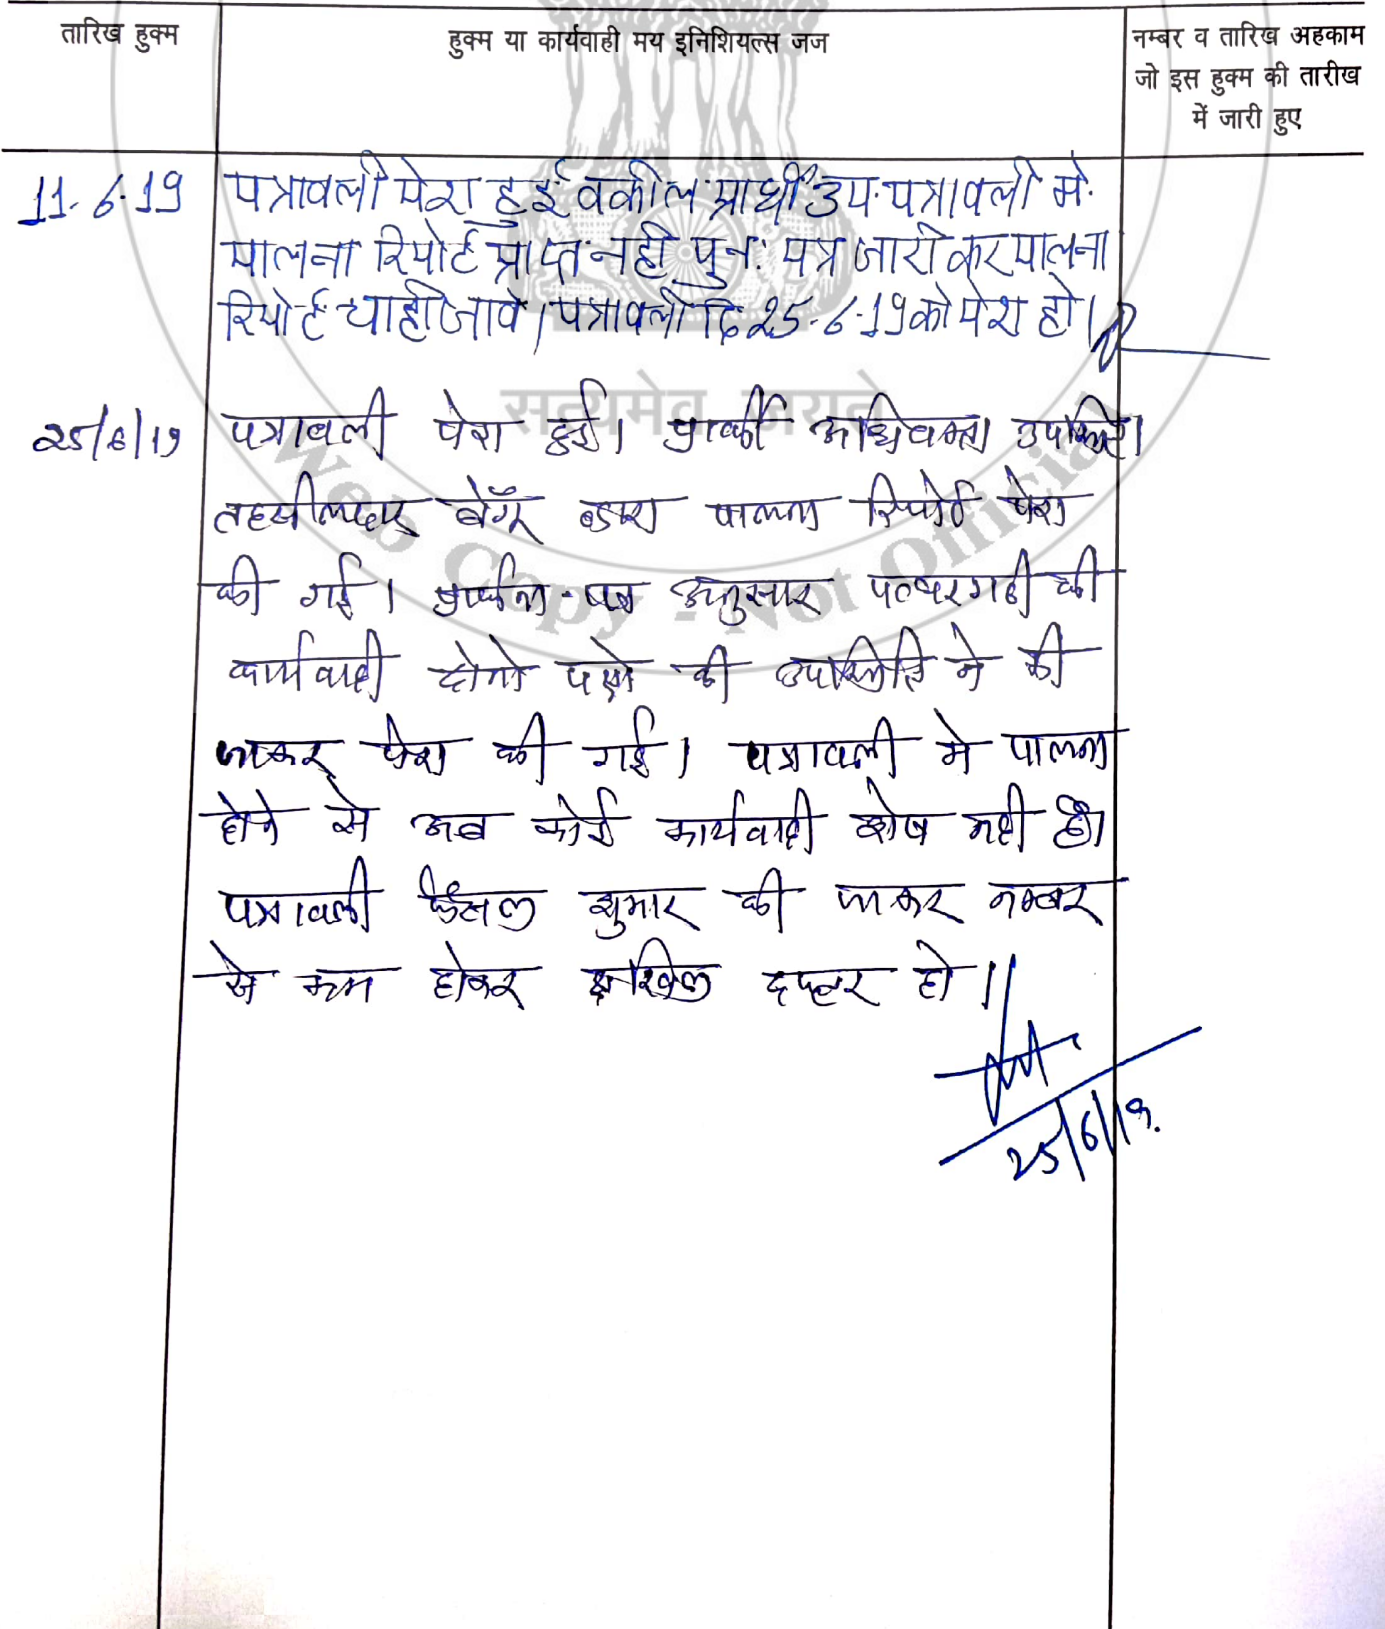 तारिख हुक्म
हुक्म या कार्यवाही मय इनिशियल्स जज
नम्बर व तारिख अहकाम
जो इस हुक्म की तारीख
में जारी हुए
11.6.19 पत्रावली पेश हुई वकील प्रार्थी उप. पत्रावली में
पालना रिपोर्ट प्राप्त नही पुन: पत्र जारी कर पालना
रिपोर्ट चाही जावे। पत्रावली दि 25.6.19 को पेश हो।
सत्यमेव जयते
Web Copy - Not Official
25/6/19 पत्रावली पेश हुई। प्रार्थी अधिवक्ता उपस्थित।
तहसीलदार बेगूँ द्वारा पालना रिपोर्ट पेश
की गई। प्रार्थना-पत्र अनुसार पत्थरगढी की
कार्यवाही दोनो पक्षो की उपस्थिति मे की
जाकर पेश की गई। पत्रावली मे पालना
होने से अब कोई कार्यवाही शेष नही है।
पत्रावली फैसल शुमार की जाकर नम्बर
से कम होकर दाखिल दफ्तर हो।
25/6/19.